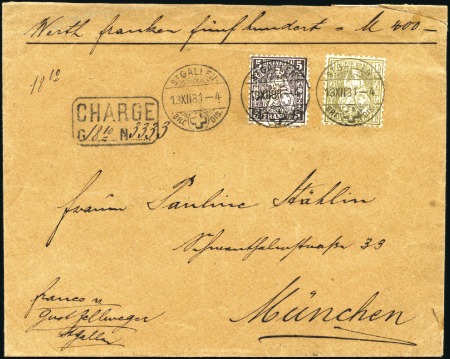 Werth franken fünf hundert = M 400 –
18 10
CHARGE
G 18.10 N 3333
ST. GALLEN
13XII81-4
5 5
13XII81-4
13XII81-4
Fräulein Pauline Stählin
Schwanthalerstraße 33
München
franco v
Gust Zellweger
St Gallen